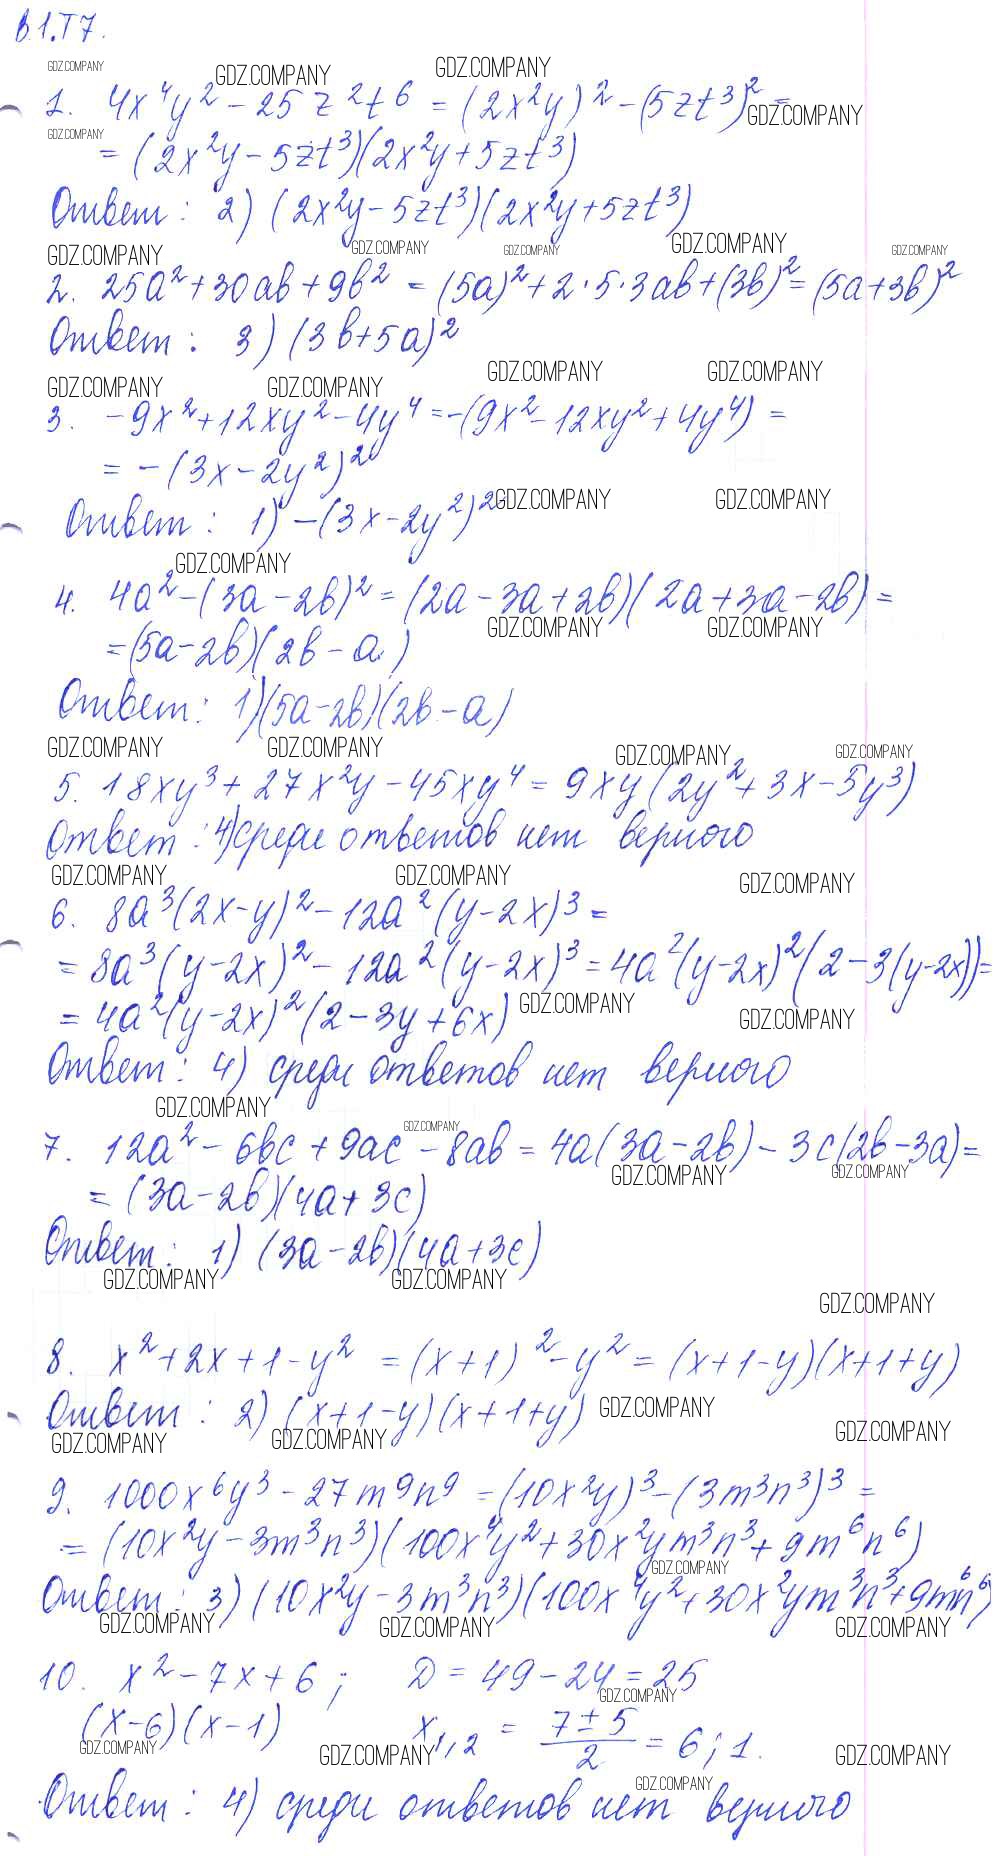 В.1.Т7.
GDZ.COMPANY GDZ.COMPANY GDZ.COMPANY
1. 4x⁴y² - 25z²t⁶ = (2x²y)² - (5zt³)² =
GDZ.COMPANY
GDZ.COMPANY
= (2x²y - 5zt³)(2x²y + 5zt³)
Ответ: 2) (2x²y - 5zt³)(2x²y + 5zt³)
GDZ.COMPANY GDZ.COMPANY GDZ.COMPANY GDZ.COMPANY GDZ.COMPANY
2. 25a² + 30ab + 9b² = (5a)² + 2·5·3ab + (3b)² = (5a+3b)²
Ответ: 3) (3b+5a)²
GDZ.COMPANY GDZ.COMPANY GDZ.COMPANY GDZ.COMPANY
3. -9x² + 12xy² - 4y⁴ = -(9x² - 12xy² + 4y⁴) =
= -(3x - 2y²)²
GDZ.COMPANY GDZ.COMPANY
Ответ: 1) -(3x - 2y²)²
GDZ.COMPANY
4. 4a² - (3a - 2b)² = (2a - 3a + 2b)(2a + 3a - 2b) =
GDZ.COMPANY GDZ.COMPANY
= (5a - 2b)(2b - a)
Ответ: 1) (5a - 2b)(2b - a)
GDZ.COMPANY GDZ.COMPANY GDZ.COMPANY GDZ.COMPANY
5. 18xy³ + 27x²y - 45xy⁴ = 9xy(2y² + 3x - 5y³)
Ответ: 4) среди ответов нет верного
GDZ.COMPANY GDZ.COMPANY GDZ.COMPANY
6. 8a³(2x-y)² - 12a²(y-2x)³ =
= 8a³(y-2x)² - 12a²(y-2x)³ = 4a²(y-2x)²(2 - 3(y-2x)) =
GDZ.COMPANY GDZ.COMPANY
= 4a²(y-2x)²(2 - 3y + 6x)
Ответ: 4) среди ответов нет верного
GDZ.COMPANY GDZ.COMPANY
7. 12a² - 6bc + 9ac - 8ab = 4a(3a - 2b) - 3c(2b - 3a) =
GDZ.COMPANY GDZ.COMPANY
= (3a - 2b)(4a + 3c)
Ответ: 1) (3a - 2b)(4a + 3c)
GDZ.COMPANY GDZ.COMPANY GDZ.COMPANY
8. x² + 2x + 1 - y² = (x+1)² - y² = (x+1-y)(x+1+y)
Ответ: 2) (x+1-y)(x+1+y)
GDZ.COMPANY GDZ.COMPANY
GDZ.COMPANY GDZ.COMPANY
9. 1000x⁶y³ - 27m⁹n⁹ = (10x²y)³ - (3m³n³)³ =
= (10x²y - 3m³n³)(100x⁴y² + 30x²ym³n³ + 9m⁶n⁶)
GDZ.COMPANY
Ответ: 3) (10x²y - 3m³n³)(100x⁴y² + 30x²ym³n³ + 9m⁶n⁶)
GDZ.COMPANY GDZ.COMPANY GDZ.COMPANY
10. x² - 7x + 6; D = 49 - 24 = 25
GDZ.COMPANY
(x-6)(x-1) x₁,₂ = (7±5)/2 = 6; 1.
GDZ.COMPANY GDZ.COMPANY GDZ.COMPANY
GDZ.COMPANY
Ответ: 4) среди ответов нет верного